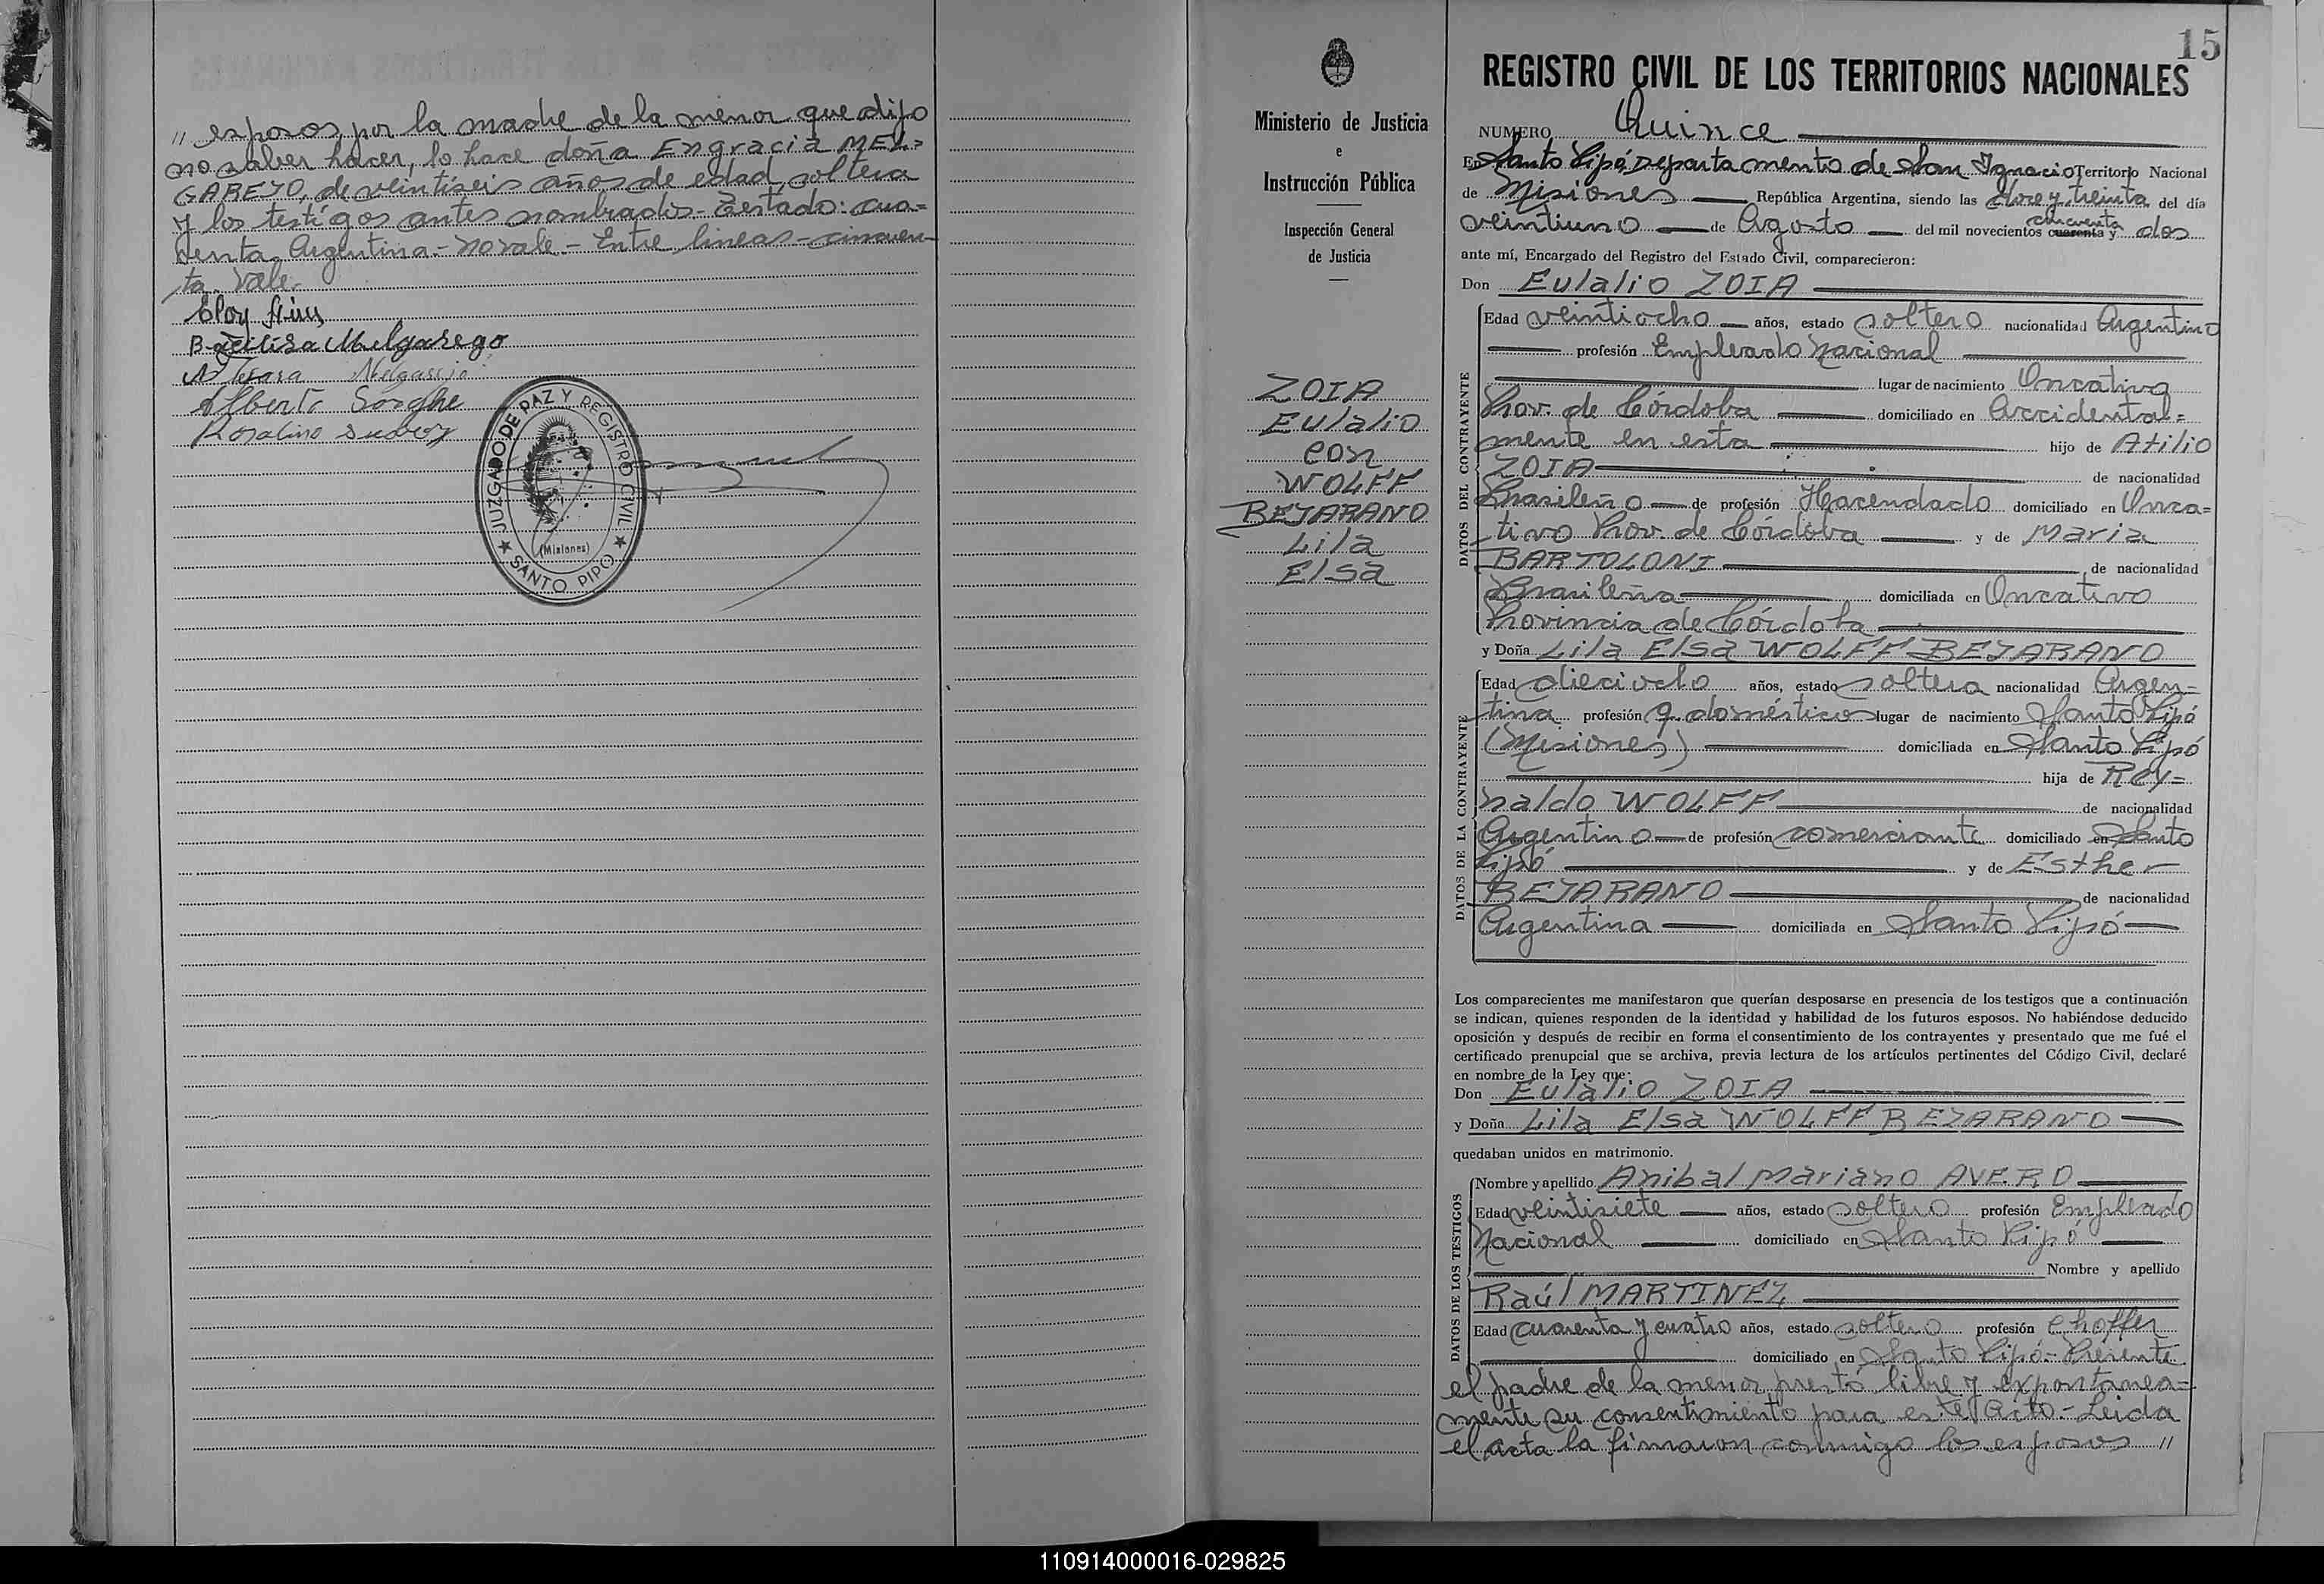 // esposos, por la madre de la menor que dijo
no saber hacer, lo hace doña Engracia MEL=
GAREJO, de veintiseis años de edad, soltera
y los testigos antes nombrados.- Testado: cua=
renta. Argentina.- No vale.- Entre lineas - cincuen-
ta. Vale.
Eloy
Bacilisa Melgarego
Alberto
Rosalino
JUZGADO DE PAZ Y REGISTRO CIVIL
(Misiones)
★ SANTO PIPO ★
Ministerio de Justicia
e
Instrucción Pública
Inspección General
de Justicia
ZOIA
Eulalio
con
WOLFF
BEJARANO
Lila
Elsa
15
REGISTRO CIVIL DE LOS TERRITORIOS NACIONALES
NUMERO Quince
En Santo Pipó, Departamento de San Ignacio Territorio Nacional
de Misiones República Argentina, siendo las doce y treinta del día
cincuenta
veintiuno de Agosto del mil novecientos cuarenta y dos
ante mí, Encargado del Registro del Estado Civil, comparecieron:
Don Eulalio ZOIA
DATOS DEL CONTRAYENTE
Edad veintiocho años, estado soltero nacionalidad Argentino
profesión Empleado Nacional
lugar de nacimiento Oncativo
Prov. de Córdoba domiciliado en Accidental=
mente en esta hijo de Atilio
ZOIA de nacionalidad
Brasileño de profesión Hacendado domiciliado en Onca=
tivo Prov. de Córdoba y de Maria
BARTOLONI de nacionalidad
Brasileña domiciliada en Oncativo
Provincia de Córdoba
y Doña Lila Elsa WOLFF BEJARANO
DATOS DE LA CONTRAYENTE
Edad dieciocho años, estado soltera nacionalidad Argen=
tina profesión q. domésticos lugar de nacimiento Santo Pipó
(Misiones) domiciliada en Santo Pipó
hija de Rey=
naldo WOLFF de nacionalidad
Argentino de profesión comerciante domiciliado en Santo
Pipó y de Esther
BEJARANO de nacionalidad
Argentina domiciliada en Santo Pipó
Los comparecientes me manifestaron que querían desposarse en presencia de los testigos que a continuación
se indican, quienes responden de la identidad y habilidad de los futuros esposos. No habiéndose deducido
oposición y después de recibir en forma el consentimiento de los contrayentes y presentado que me fué el
certificado prenupcial que se archiva, previa lectura de los artículos pertinentes del Código Civil, declaré
en nombre de la Ley que:
Don Eulalio ZOIA
y Doña Lila Elsa WOLFF BEJARANO
quedaban unidos en matrimonio.
DATOS DE LOS TESTIGOS
Nombre y apellido Anibal Mariano AVERO
Edad veintisiete años, estado soltero profesión Empleado
Nacional domiciliado en Santo Pipó
Nombre y apellido
Raúl MARTINEZ
Edad cuarenta y cuatro años, estado soltero profesión choffer
domiciliado en Santo Pipó.- Presente
el padre de la menor prestó libre y expontanea=
mente su consentimiento para este acto.- Leida
el acta la firmaron conmigo los esposos //
110914000016-029825